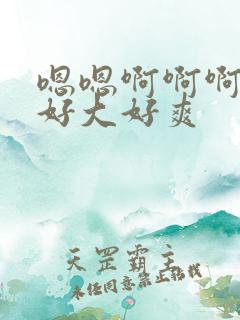 嗯嗯啊啊啊
好大好爽
天罡霸主
未经同意禁止转载